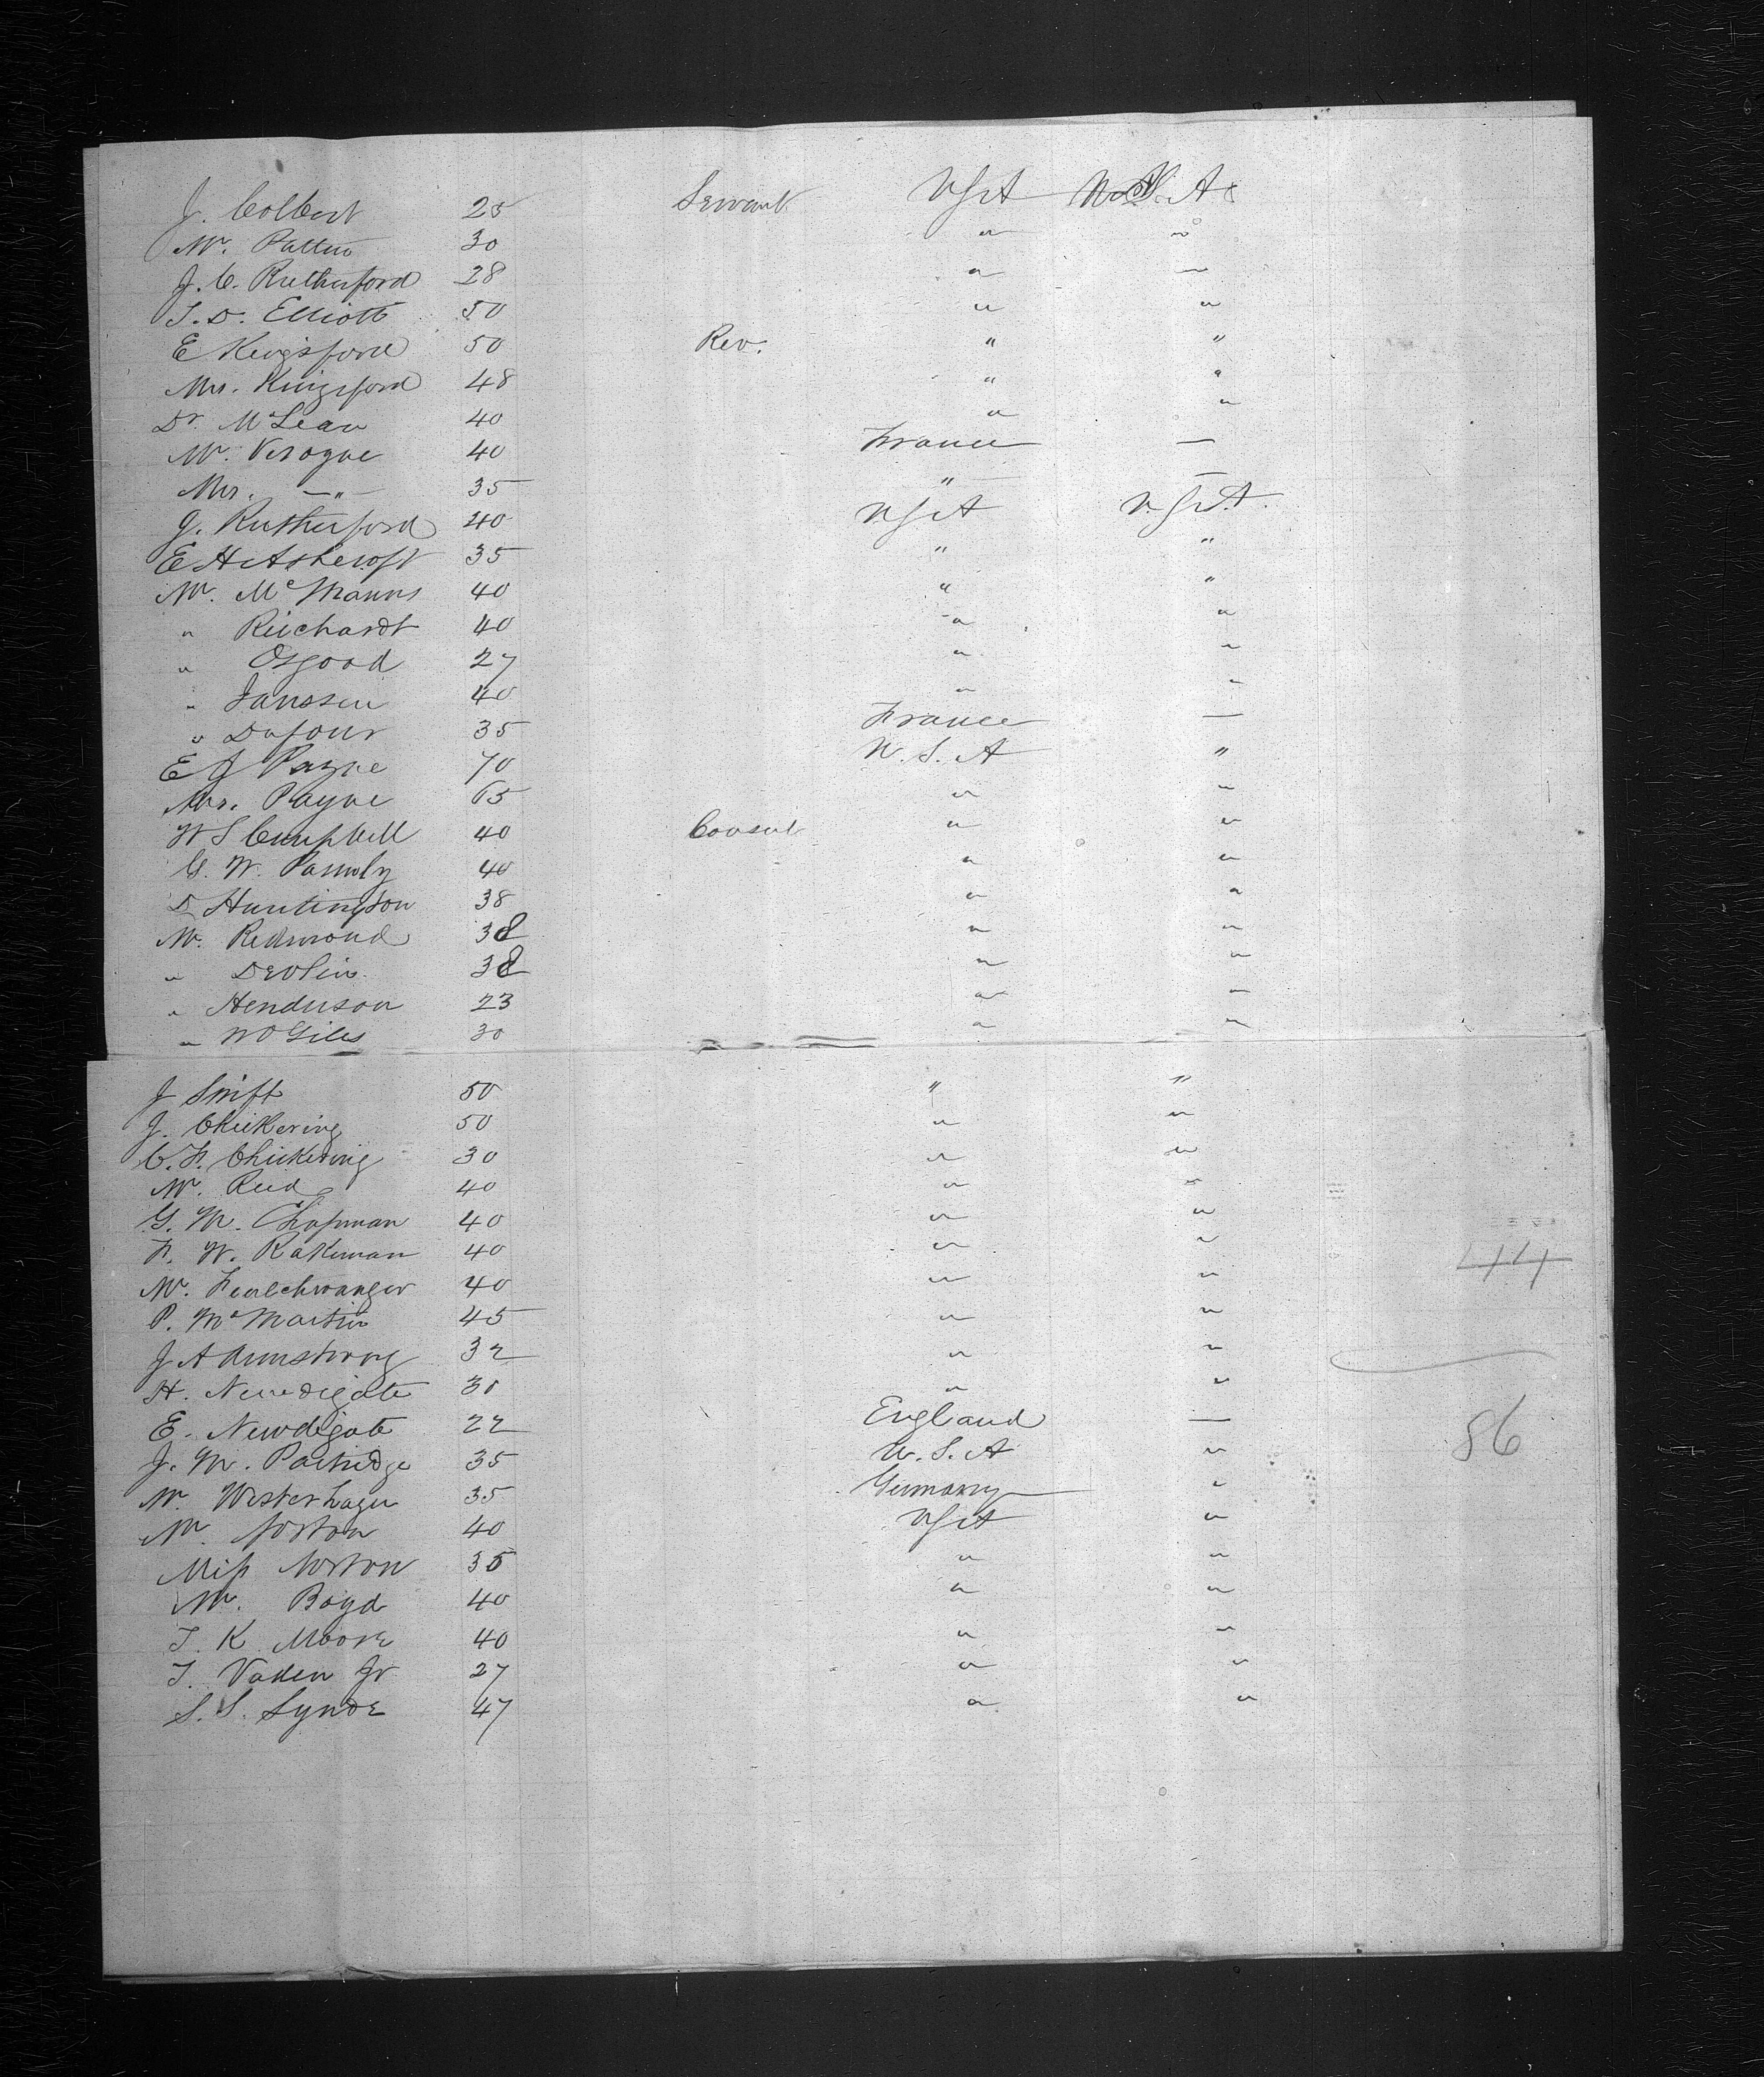 J. Colbert 25 Servant USA U.S.A
Mr. Patten 30 " "
J. C. Rutherford 28 " "
S. D. Elliott 50 " "
E Kingsford 50 Rev. " "
Mrs. Kingsford 48 " "
Dr. McLean 40 " "
Mr. Verogne 40 France —
Mrs. —"— 35 " —
J. Rutherford 40 USA U.S.A.
E H Ashcroft 35 " "
Mr. McManns 40 " "
" Reichardt 40 " "
" Osgood 27 " "
" Janssen 40 " "
" Dufour 35 France —
E J Payne 70 U.S.A "
Mrs. Payne 65 " "
W S Campbell 40 Consul " "
G. W. Parmly 40 " "
D Huntington 38 " "
Mr. Redmond 38 " "
" Devlin 38 " "
" Henderson 23 " "
" W O Giles 30 " "
J Swift 50 " "
J. Chickering 50 " "
C. F. Chickering 30 " "
Mr. Reid 40 " "
G. M. Chapman 40 " "
F. W. Rakeman 40 " "
Mr. Feuchtwanger 40 " "
P. McMartin 45 " "
J A Armstrong 32 " "
H. Newdigate 30 " "
E. Newdigate 22 England —
J. M. Partridge 35 U.S.A "
Mr. Westerhagen 35 Germany "
Mr. Norton 40 USA "
Miss Norton 35 " "
Mr. Boyd 40 " "
J. K. Moore 40 " "
J. Vaden Jr 27 " "
S. S. Lynde 47 " "
86